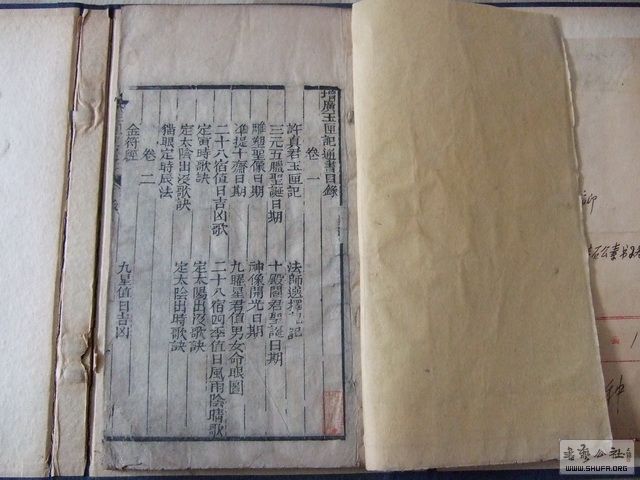 增廣玉匣記通書目錄
卷一
許真君玉匣記 法師選擇記
三元五臘聖誕日期 十殿閻君聖誕日期
雕塑聖像日期 神像開光日期
準提十齋日期 九曜星君值男女命限圖
二十八宿值日吉凶歌 二十八宿四季值日風雨陰晴歌
定寅時歌訣 定太陽出沒歌訣
定太陰出沒歌訣 定太陰出時歌訣
貓眼定時辰法
卷二
金符經 九星值日吉凶
書藝公社
WWW.SHUFA.ORG